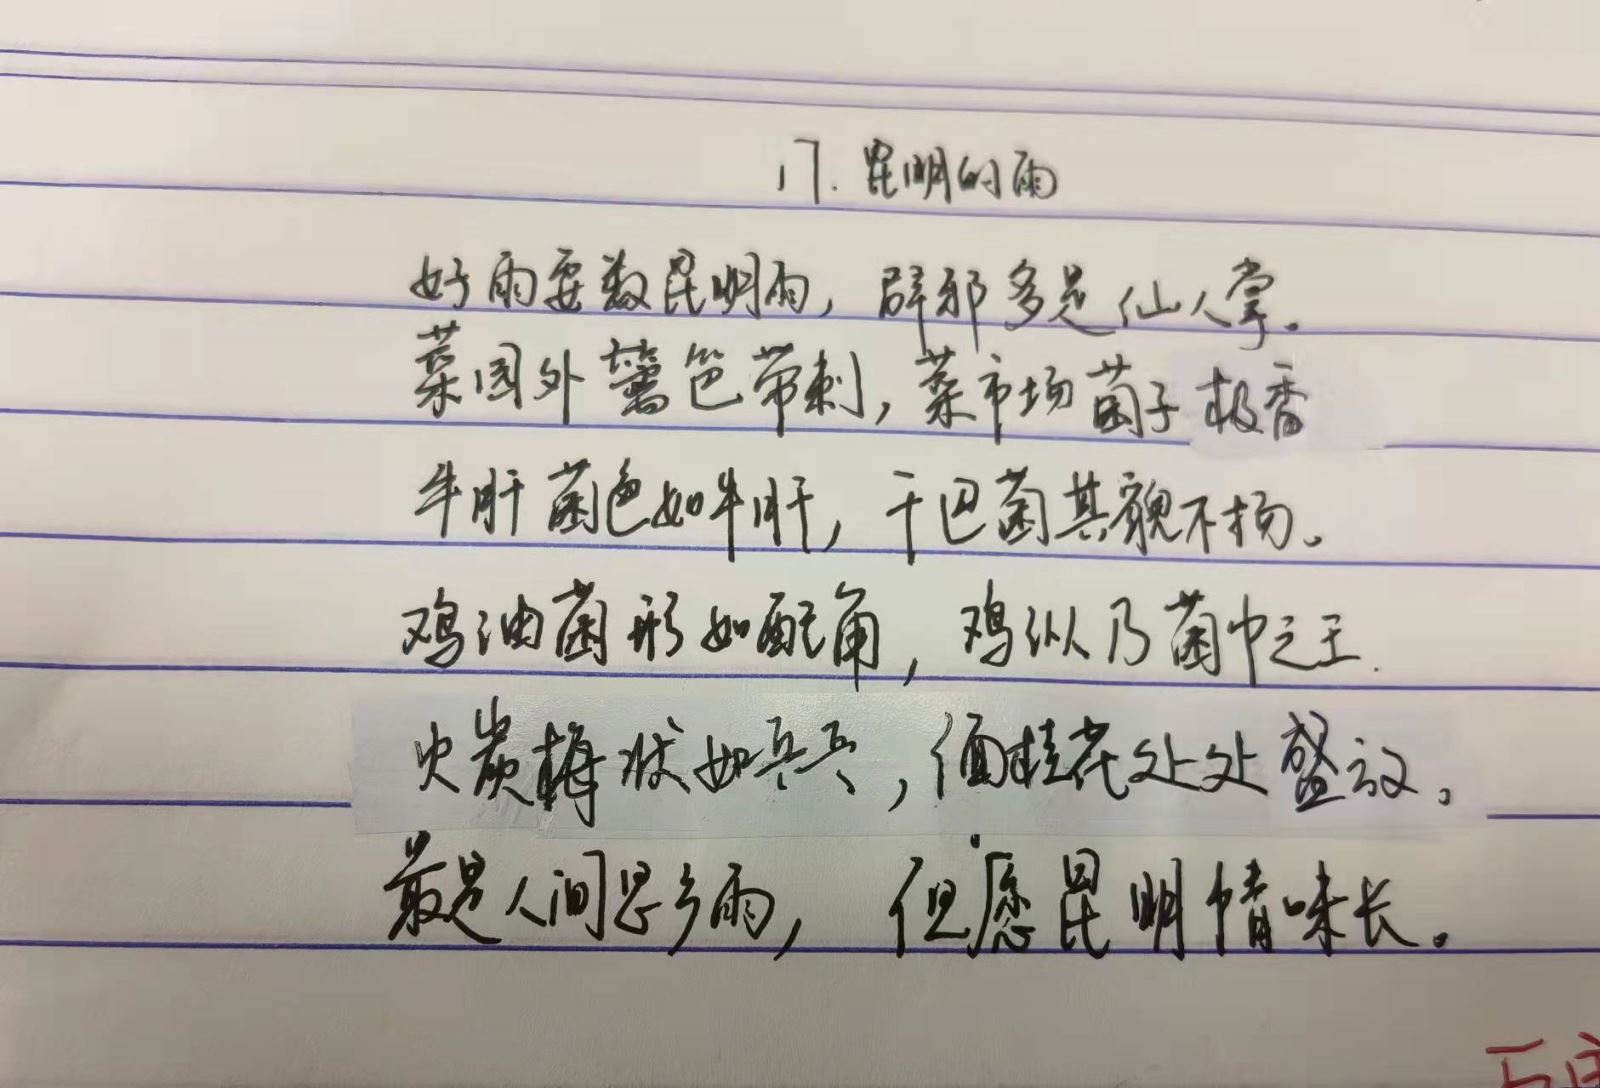 17.昆明的雨
好雨要数昆明雨，辟邪多是仙人掌。
菜园外篱笆带刺，菜市场菌子极香
牛肝菌色如牛肝，干巴菌其貌不扬。
鸡油菌形如配角，鸡㙡乃菌中之王.
火炭梅状如乒乓，缅桂花处处盛放。
最是人间思乡雨，但愿昆明情味长。